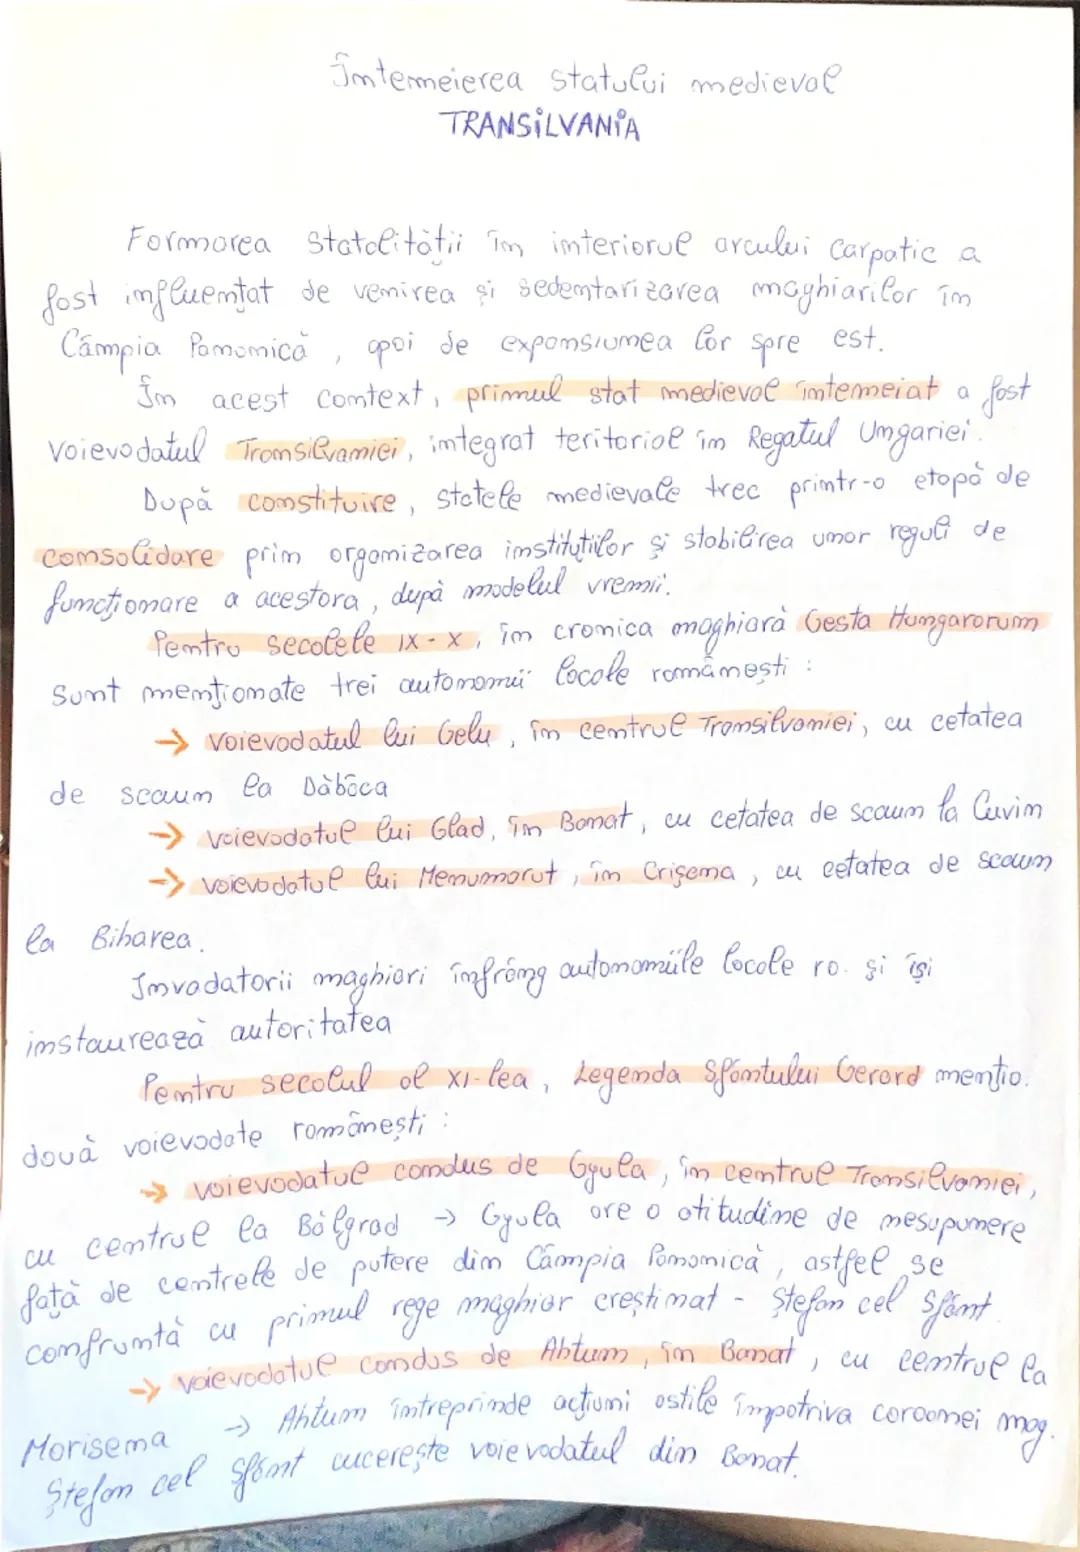 Întemeierea statului medieval
TRANSILVANIA
Formarea statalității în interiorul arcului carpatic a
fost influențat de venirea și sedentarizarea maghiarilor în
Câmpia Panonică, apoi de expansiunea lor spre est.
În acest context, primul stat medieval întemeiat a fost
Voievodatul Transilvaniei, integrat teritorial în Regatul Ungariei.
După constituire, statele medievale trec printr-o etapă de
consolidare prin organizarea instituțiilor și stabilirea unor reguli de
funcționare a acestora, după modelul vremii.
Pentru secolele IX-X, în cronica maghiară Gesta Hungarorum
sunt menționate trei autonomii locale românești:
→ voievodatul lui Gelu, în centrul Transilvaniei, cu cetatea
de scaun la Dăbâca
→ voievodatul lui Glad, în Banat, cu cetatea de scaun la Cuvin
→ voievodatul lui Menumorut, în Crișana, cu cetatea de scaun
la Biharea.
Invadatorii maghiari înfrâng autonomiile locale ro. și își
instaurează autoritatea
Pentru secolul al XI-lea, Legenda Sfântului Gerard mențio.
două voievodate românești:
→ voievodatul condus de Gyula, în centrul Transilvaniei,
cu centrul la Bălgrad → Gyula are o atitudine de nesupunere
față de centrele de putere din Câmpia Panonică, astfel se
confruntă cu primul rege maghiar creștinat - Ștefan cel Sfânt.
→ voievodatul condus de Ahtum, în Banat, cu centrul la
Morisena → Ahtum întreprinde acțiuni ostile împotriva coroanei mag.
Ștefan cel Sfânt cucerește voievodatul din Banat.